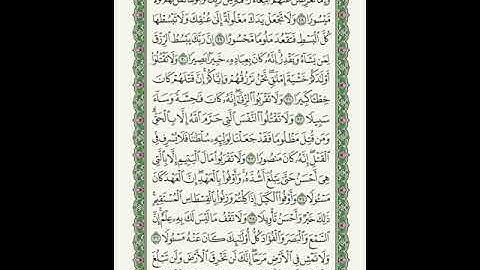 وَإِمَّا تُعْرِضَنَّ عَنْهُمُ ٱبْتِغَآءَ رَحْمَةٍ مِّن رَّبِّكَ تَرْجُوهَا فَقُل لَّهُمْ قَوْلًا
مَّيْسُورًا ۝٢٨ وَلَا تَجْعَلْ يَدَكَ مَغْلُولَةً إِلَىٰ عُنُقِكَ وَلَا تَبْسُطْهَا
كُلَّ ٱلْبَسْطِ فَتَقْعُدَ مَلُومًا مَّحْسُورًا ۝٢٩ إِنَّ رَبَّكَ يَبْسُطُ ٱلرِّزْقَ
لِمَن يَشَآءُ وَيَقْدِرُ ۚ إِنَّهُۥ كَانَ بِعِبَادِهِۦ خَبِيرًۢا بَصِيرًا ۝٣٠ وَلَا تَقْتُلُوٓا۟
أَوْلَـٰدَكُمْ خَشْيَةَ إِمْلَـٰقٍ ۖ نَّحْنُ نَرْزُقُهُمْ وَإِيَّاكُمْ ۚ إِنَّ قَتْلَهُمْ كَانَ
خِطْـًٔا كَبِيرًا ۝٣١ وَلَا تَقْرَبُوا۟ ٱلزِّنَىٰٓ ۖ إِنَّهُۥ كَانَ فَـٰحِشَةً وَسَآءَ
سَبِيلًا ۝٣٢ وَلَا تَقْتُلُوا۟ ٱلنَّفْسَ ٱلَّتِى حَرَّمَ ٱللَّهُ إِلَّا بِٱلْحَقِّ ۗ
وَمَن قُتِلَ مَظْلُومًا فَقَدْ جَعَلْنَا لِوَلِيِّهِۦ سُلْطَـٰنًا فَلَا يُسْرِف فِّى
ٱلْقَتْلِ ۖ إِنَّهُۥ كَانَ مَنصُورًا ۝٣٣ وَلَا تَقْرَبُوا۟ مَالَ ٱلْيَتِيمِ إِلَّا بِٱلَّتِى
هِىَ أَحْسَنُ حَتَّىٰ يَبْلُغَ أَشُدَّهُۥ ۚ وَأَوْفُوا۟ بِٱلْعَهْدِ ۖ إِنَّ ٱلْعَهْدَ كَانَ
مَسْـُٔولًا ۝٣٤ وَأَوْفُوا۟ ٱلْكَيْلَ إِذَا كِلْتُمْ وَزِنُوا۟ بِٱلْقِسْطَاسِ ٱلْمُسْتَقِيمِ ۚ
ذَٰلِكَ خَيْرٌ وَأَحْسَنُ تَأْوِيلًا ۝٣٥ وَلَا تَقْفُ مَا لَيْسَ لَكَ بِهِۦ عِلْمٌ ۚ إِنَّ
ٱلسَّمْعَ وَٱلْبَصَرَ وَٱلْفُؤَادَ كُلُّ أُو۟لَـٰٓئِكَ كَانَ عَنْهُ مَسْـُٔولًا ۝٣٦
وَلَا تَمْشِ فِى ٱلْأَرْضِ مَرَحًا ۖ إِنَّكَ لَن تَخْرِقَ ٱلْأَرْضَ وَلَن تَبْلُغَ